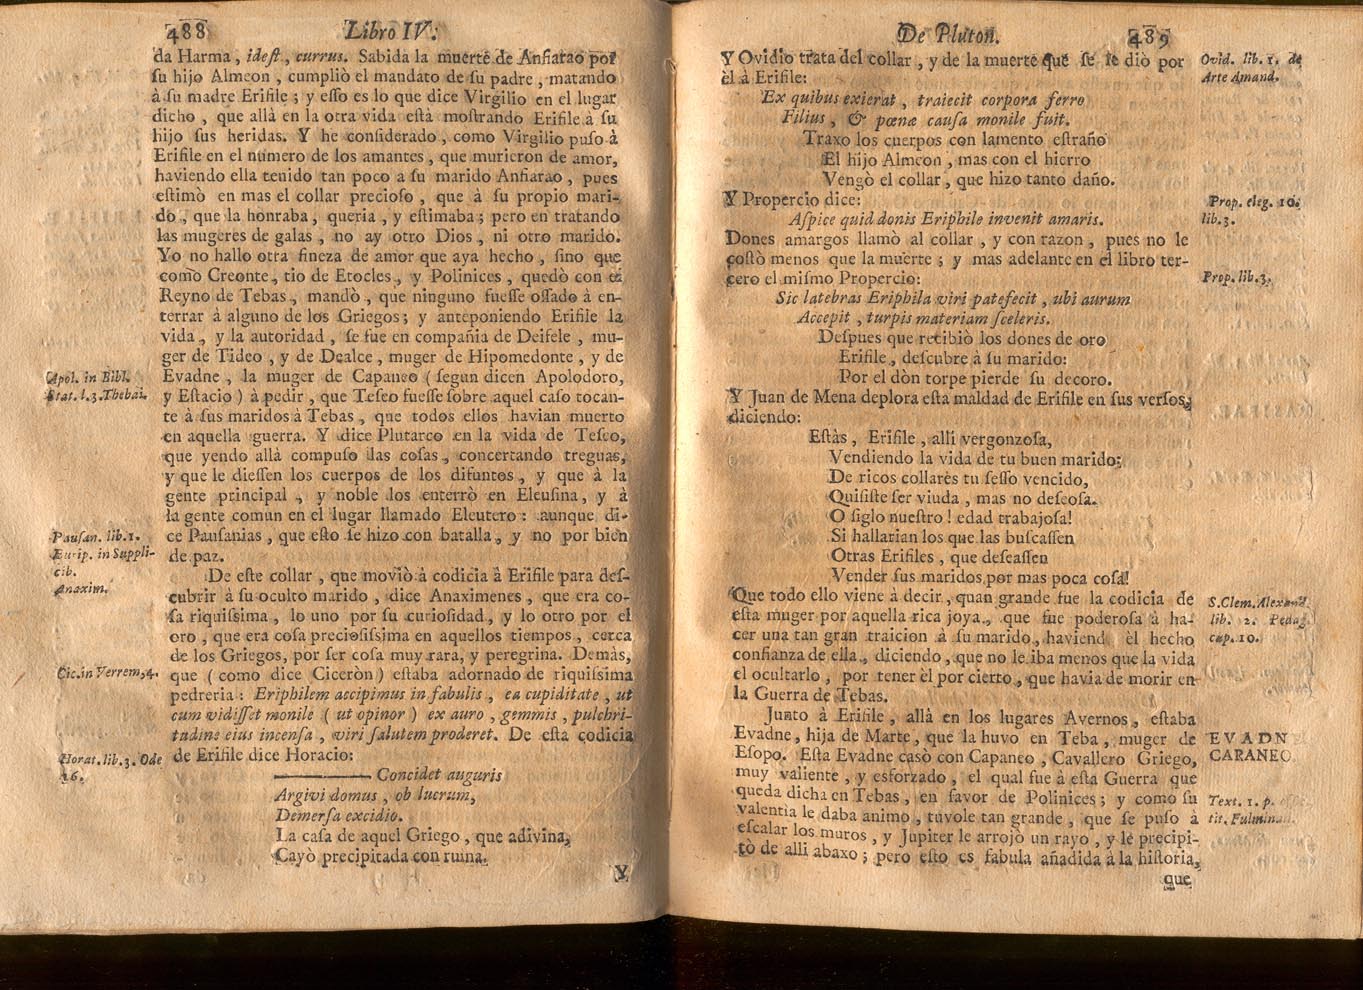 488 Libro IV.
da Harma, idest, currus. Sabida la muerte de Anfiarao por
su hijo Almeon, cumpliò el mandato de su padre, matando
à su madre Erifile; y esso es lo que dice Virgilio en el lugar
dicho, que allà en la otra vida està mostrando Erifile à su
hijo sus heridas. Y he considerado, como Virgilio puso à
Erifile en el numero de los amantes, que murieron de amor,
haviendo ella tenido tan poco a su marido Anfiarao, pues
estimò en mas el collar precioso, que à su propio mari-
do, que la honraba, queria, y estimaba; pero en tratando
las mugeres de galas, no ay otro Dios, ni otro marido.
Yo no hallo otra fineza de amor que aya hecho, sino que
como Creonte, tio de Etocles, y Polinices, quedò con el
Reyno de Tebas, mandò, que ninguno fuesse ossado à en-
terrar à alguno de los Griegos; y anteponiendo Erifile la
vida, y la autoridad, se fue en compañia de Deifele, mu-
ger de Tideo, y de Dealce, muger de Hipomedonte, y de
Evadne, la muger de Capaneo (segun dicen Apolodoro,
y Estacio) à pedir, que Teseo fuesse sobre aquel caso tocan-
te à sus maridos à Tebas, que todos ellos havian muerto
en aquella guerra. Y dice Plutarco en la vida de Teseo,
que yendo allà compuso las cosas, concertando treguas,
y que le diessen los cuerpos de los difuntos, y que à la
gente principal, y noble los enterrò en Eleusina, y à
la gente comun en el lugar llamado Eleutero: aunque di-
ce Pausanias, que esto se hizo con batalla, y no por bien
de paz.
De este collar, que moviò à codicia à Erifile para des-
cubrir à su oculto marido, dice Anaximenes, que era co-
sa riquissima, lo uno por su curiosidad, y lo otro por el
oro, que era cosa preciosissima en aquellos tiempos, cerca
de los Griegos, por ser cosa muy rara, y peregrina. Demàs,
que (como dice Ciceròn) estaba adornado de riquissima
pedreria: Eriphilem accipimus in fabulis, ea cupiditate, ut
cum vidisset monile (ut opinor) ex auro, gemmis, pulchri-
tudine eius incensa, viri salutem proderet. De esta codicia
de Erifile dice Horacio:
Concidet auguris
Argivi domus, ob lucrum,
Demersa excidio.
La casa de aquel Griego, que adivina,
Cayò precipitada con ruina.
Y
Apol. in Bibl.
Stat. l.3. Thebai.
Pausan. lib.1.
Eurip. in Suppli-
cib.
Anaxim.
Cic. in Verrem, 4.
Horat. lib. 3. Ode
16.
De Pluton. 489
Y Ovidio trata del collar, y de la muerte que se le diò por
èl à Erifile:
Ex quibus exierat, traiecit corpora ferro
Filius, & pœnæ causa monile fuit.
Traxo los cuerpos con lamento estraño
El hijo Almeon, mas con el hierro
Vengò el collar, que hizo tanto daño.
Y Propercio dice:
Aspice quid donis Eriphile invenit amaris.
Dones amargos llamò al collar, y con razon, pues no le
costò menos que la muerte; y mas adelante en el libro ter-
cero el mismo Propercio:
Sic latebras Eriphila viri patefecit, ubi aurum
Accepit, turpis materiam sceleris.
Despues que recibiò los dones de oro
Erifile, descubre à su marido:
Por el dòn torpe pierde su decoro.
Y Juan de Mena deplora esta maldad de Erifile en sus versos,
diciendo:
Estàs, Erifile, allì vergonzosa,
Vendiendo la vida de tu buen marido;
De ricos collares tu sesso vencido,
Quisiste ser viuda, mas no deseosa.
O siglo nuestro! edad trabajosa!
Si hallarian los que las buscassen
Otras Erifiles, que deseassen
Vender sus maridos por mas poca cosa!
Que todo ello viene à decir, quan grande fue la codicia de
esta muger por aquella rica joya, que fue poderosa à ha-
cer una tan gran traicion à su marido, haviend èl hecho
confianza de ella, diciendo, que no le iba menos que la vida
el ocultarlo, por tener èl por cierto, que havia de morir en
la Guerra de Tebas.
Junto à Erifile, allà en los lugares Avernos, estaba
Evadne, hija de Marte, que la huvo en Teba, muger de
Esopo. Esta Evadne casò con Capaneo, Cavallero Griego,
muy valiente, y esforzado, el qual fue à esta Guerra que
queda dicha en Tebas, en favor de Polinices; y como su
valentia le daba animo, tùvole tan grande, que se puso à
escalar los muros, y Jupiter le arrojò un rayo, y le precipi-
tò de alli abaxo; pero esto es fabula añadida à la historia,
que
Ovid. lib. 1. de
Arte Amand.
Prop. eleg. 10.
lib. 3.
Prop. lib. 3.
S. Clem. Alexand.
lib. 2. Pedag.
cap. 10.
EVADN
CARANEO
Text. 1. p.
tit. Fulmin